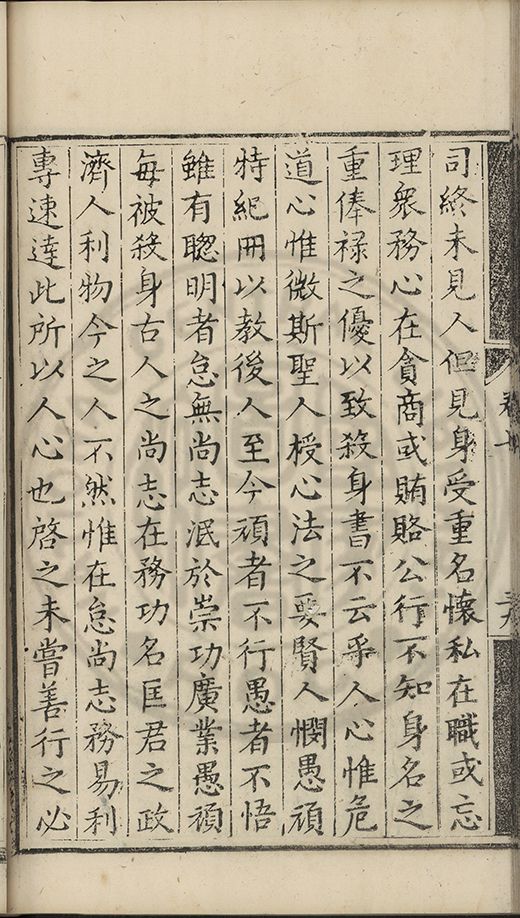 司終未見人但見身受重名懷私在職或忘
理衆務心在貪商或賄賂公行不知身名之
重俸禄之優以致殺身書不云乎人心惟危
道心惟微斯聖人授心法之要賢人憫愚頑
特紀冊以教後人至今頑者不行愚者不悟
雖有聰明者怠無尚志泯於崇功廣業愚頑
每被殺身古人之尚志在務功名匡君之政
濟人利物今之人不然惟在怠尚志務易利
專速達此所以人心也啓之未嘗善行之必